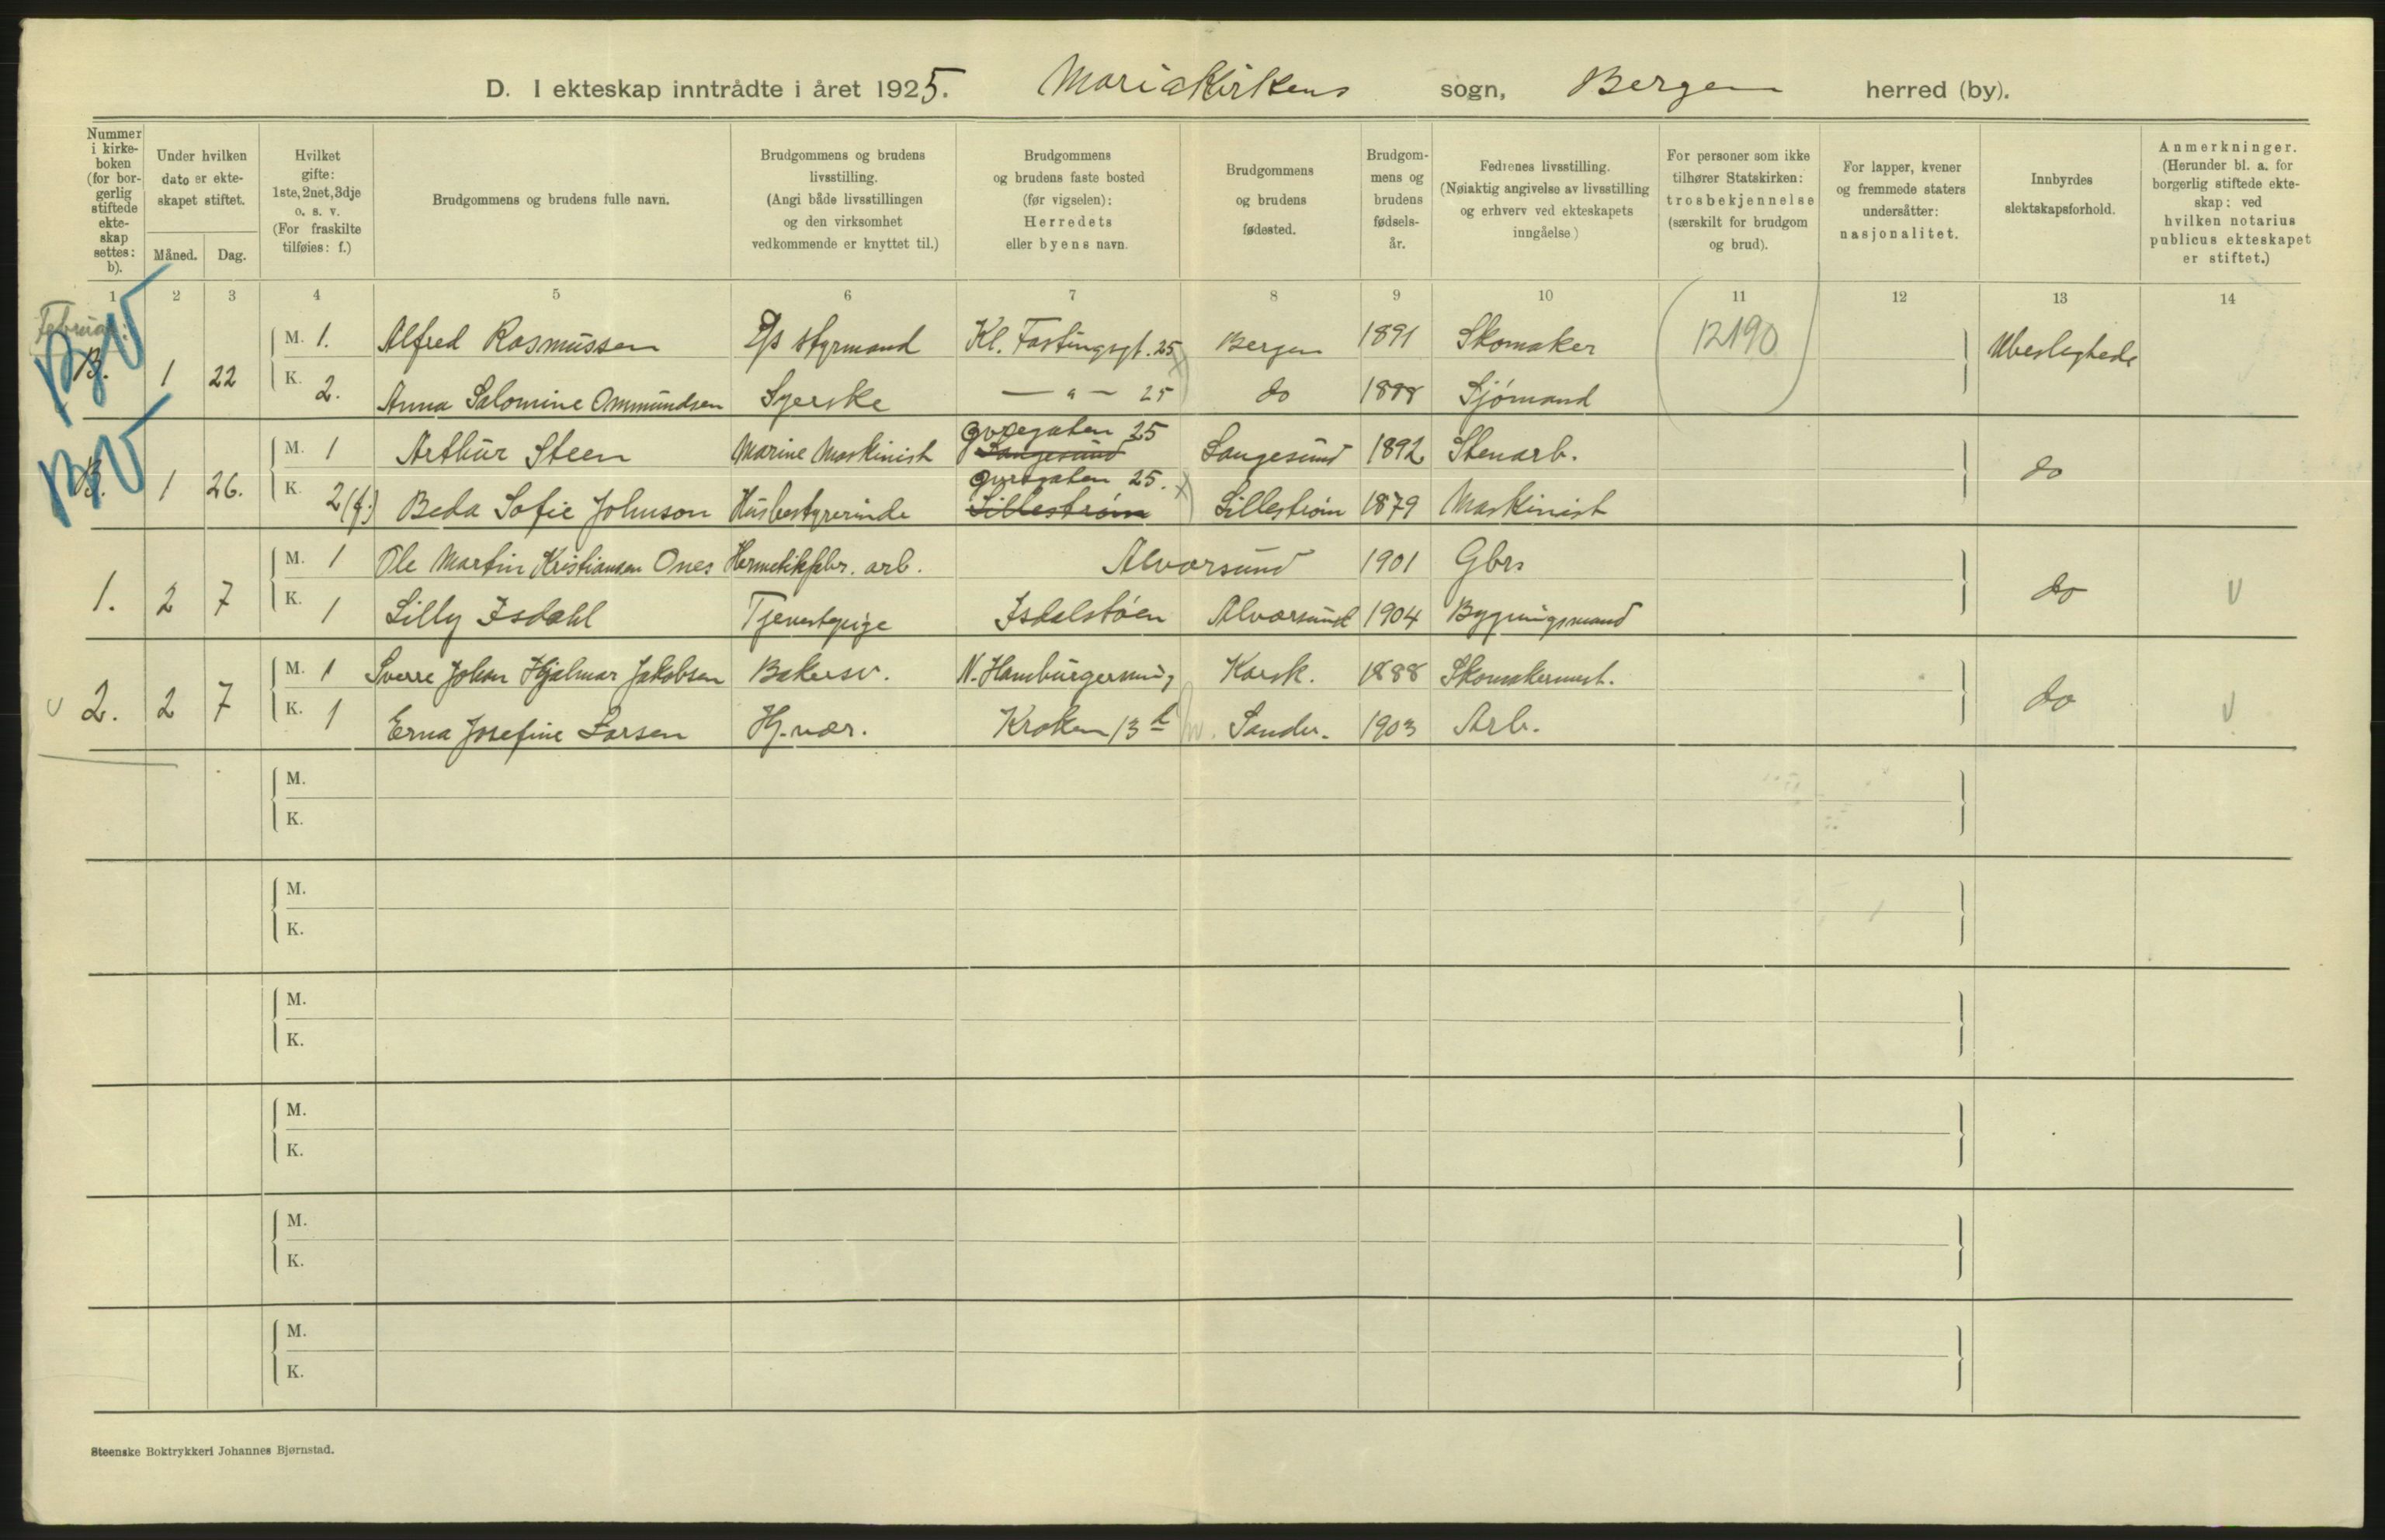 D. I ekteskap inntrådte i året 1925. Mariakirkens sogn, Bergen herred (by).
Nummer i kirkeboken (for borgerlig stiftede ekteskap settes: b).
Under hvilken dato er ekteskapet stiftet.
Måned. Dag.
Hvilket gifte: 1ste, 2net, 3dje o. s. v. (For fraskilte tilføies: f.)
Brudgommens og brudens fulle navn.
Brudgommens og brudens livsstilling. (Angi både livsstillingen og den virksomhet vedkommende er knyttet til.)
Brudgommens og brudens faste bosted (før vigselen): Herredets eller byens navn.
Brudgommens og brudens fødested.
Brudgommens og brudens fødselsår.
Fedrenes livsstilling. (Nøiaktig angivelse av livsstilling og erhverv ved ekteskapets inngåelse.)
For personer som ikke tilhører Statskirken: trosbekjennelse (særskilt for brudgom og brud).
For lapper, kvener og fremmede staters undersåtter: nasjonalitet.
Innbyrdes slektskapsforhold.
Anmerkninger. (Herunder bl. a. for borgerlig stiftede ekteskap: ved hvilken notarius publicus ekteskapet er stiftet.)
1 2 3 4 5 6 7 8 9 10 11 12 13 14
Februar:
B. 1 22
M. 1. Alfred Rasmussen styrmand Kl. Fastingsgt. 25 Bergen 1891 Skomaker 12190 Ubeslegtede
K. 2. Anna Salomine Ommundsen Syerske — " — 25 do 1888 Sjømand
B. 1 26.
M. 1 Arthur Steen Marine Maskinist 25 Langesund Langesund 1892 Stenarb. do
K. 2 (f.) Beda Sofie Johnson Husbestyrerinde 25. Lillestrøm Lillestrøm 1879 Maskinist
1. 2 7
M. 1 Ole Martin Kristiansen Ones Hermetikfabr. arb. Alversund 1901 Gbr. do V
K. 1 Lilly Isdahl Tjenestepige Isdalstøen Alversund 1904 Bygningsmand
V 2. 2 7
M. 1 Sverre Johan Hjalmar Jakobsen Bakersv. N. Hamburgersm. 7 Karsk. 1888 Skomakermest. do V
K. 1 Erna Josefine Larsen Hj. vær. Kroken 13 Sandv. 1903 Arb.
M.
K.
M.
K.
M.
K.
M.
K.
M.
K.
M.
K.
Steenske Boktrykkeri Johannes Bjørnstad.